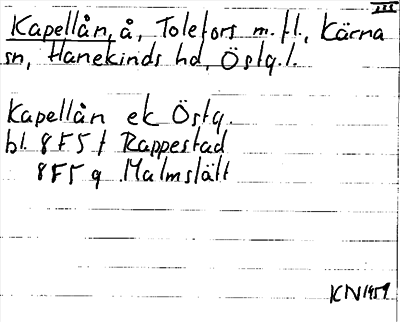 Kapellån, å, Tolefors m.fl., Kärna
sn, Hanekinds hd, Östg.l.
Kapellån ek Östg.
bl. 8F5f Rappestad
8F5g Malmslätt
KN1959